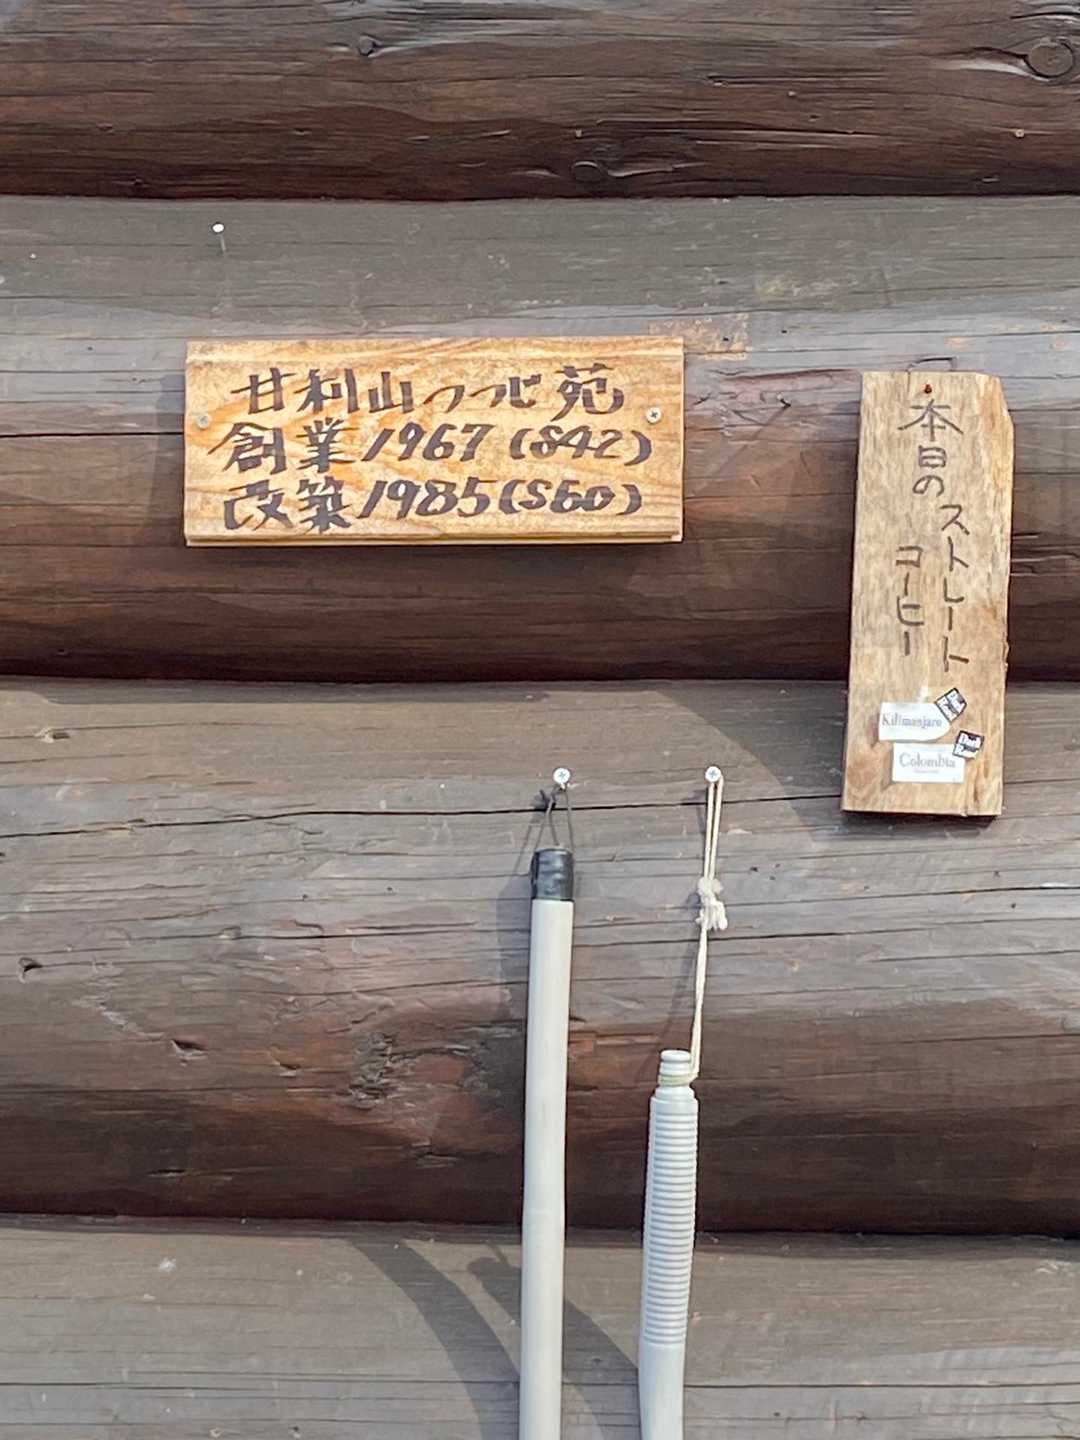 甘利山つつじ苑
創業1967(S42)
改築1985(S60)
本日の
ストレート
コーヒー
Kilimanjaro
Dark
Roast
Colombia
Dark
Roast